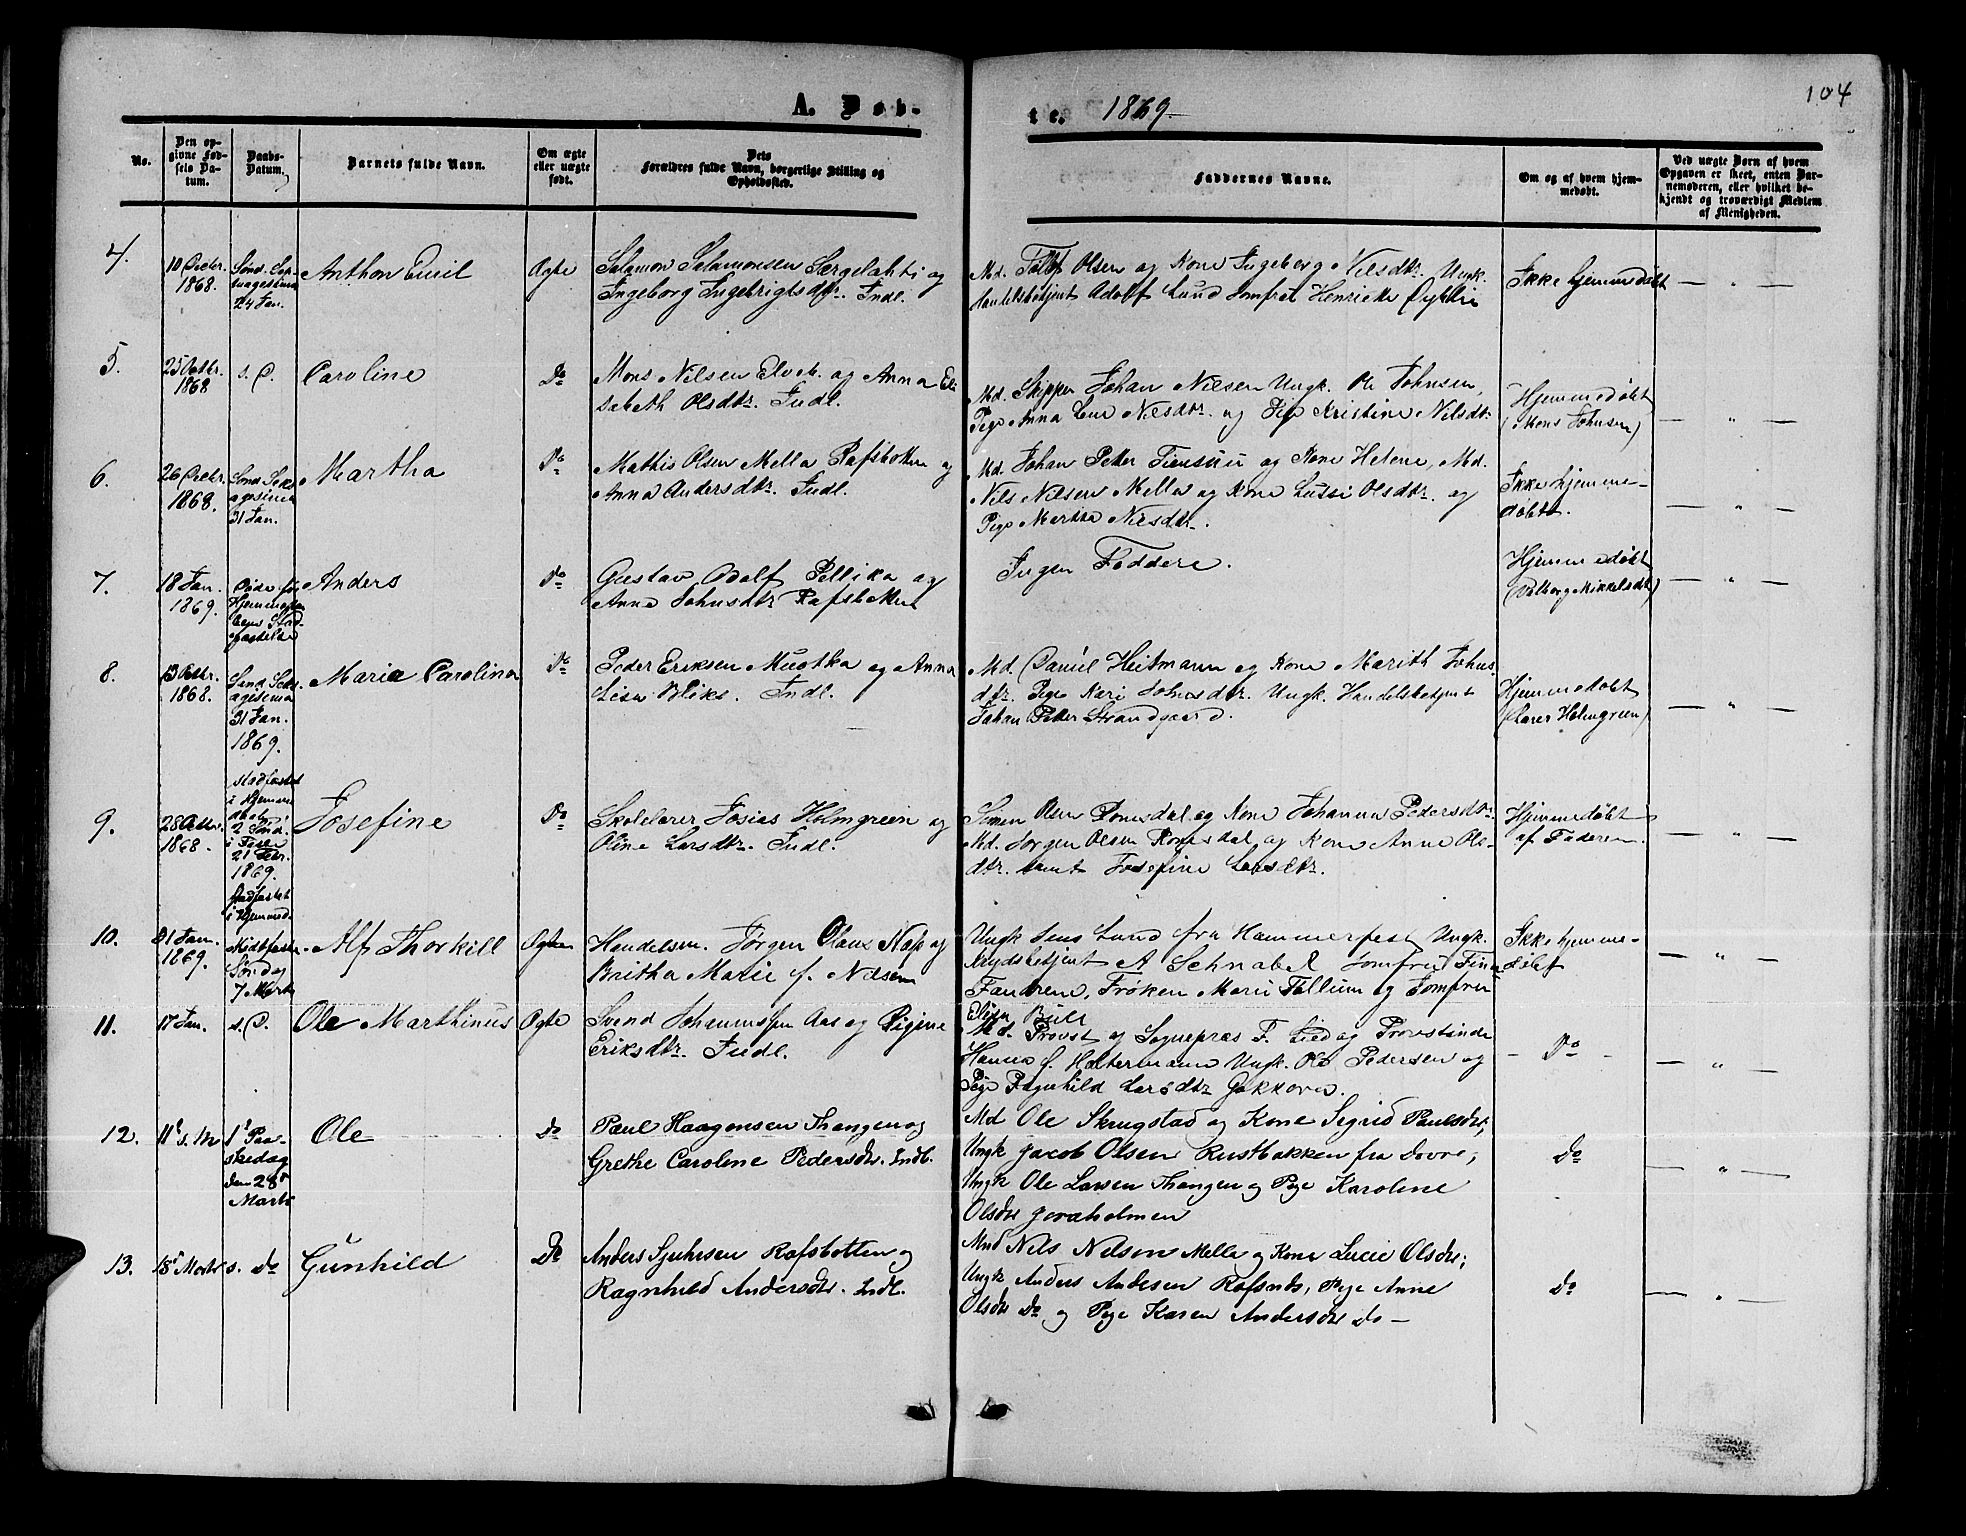 104
A. Døb-
te. 1869.
No.
Den opgivne Fødsels Datum.
Daabs-Datum.
Barnets fulde Navn.
Om ægte eller uægte født.
Dets Forældres fulde Navn, borgerlige Stilling og Opholdssted.
Faddernes Navne.
Om og af hvem hjemmedøbt.
Ved uægte Børn af hvem Opgaven er skeet, enten Barnemoderen, eller hvilket bekjendt og troværdigt Medlem af Menigheden.
4.
10 Decbr.
1868.
Sønd. Sep-
tuagesima
24 Jan.
Anthon Emil
Ægte
Salamon Salamonsen Særgelahti og
Ingeborg Ingebrigtsdtr. Indl.
Md. Olsen og Kone Ingeborg Nilsdtr. Ungk.
Handelsbetjent Adolf Lund Jomfru Henrikke
Ikke hjemmedøbt
— " —
5.
25 Octbr.
1868
s. D.
Caroline
Do
Mons Nilsen Elveb. og Anna Eli
sabeth Olsdtr. Indl.
Md. Skipper Johan Nilsen Ungk. Ole Johnsen,
Pige Anna Nilsdtr. og Pige Kristine Nilsdtr.
Hjemmedøbt
(Mons Johnsen)
— " —
6.
26 Decbr.
1868.
Sønd. Seks-
agesima
31 Jan.
Martha
Do
Mathis Olsen Mella Rafsbotten og
Anna Andersdtr. Indl.
Md. Johan Petter Tiensuu og Kone Helene, Md.
Nils Nilsen Mella og Kone Lussi Olsdtr. og
Pige Martha Nilsdtr.
Ikke hjemme-
døbt.
— " —
7.
18 Jan.
1869.
Døde før
Hjemmedaa
bens Stad-
fæstelse
Anders
Do
Gustav Adolf Pellika og
Anna Johnsdtr Rafsbotten
Ingen Faddere.
Hjemmedøbt
(Valborg Mikkelsdtr)
— " —
8.
13 Octbr.
1868.
Sønd. Seks-
agesima
31 Jan.
1869.
stadfæstet
i Hjemme
daab
Maria Carolina
Do
Peder Eriksen Muotka og Anna
Lisa Bliks. Indl.
Md. Daniel Heitmann og Kone Marith Johns-
dtr. Pige Kari Johnsdtr. Ungk. Handelsbetjent
Johan Petter Strandgaard.
Hjemmedøbt
(Lærer Holmgreen)
— " —
9.
28 Octbr.
1868.
2 Sønd.
i Fasten
21 Febr.
1869.
stadfæstet
i Hjemmed.
Josefine
Do
Skolelærer Josias Holmgreen og
Oline Larsdtr. Indl.
Simon Olsen Romsdal og Kone Johanna Pedersdtr.
Md. Jørgen Olsen Romsdal og Kone Anne Ols-
dtr. samt Josefine Larsdtr.
Hjemmedøbt
af Faderen.
— " —
10.
31 Jan.
1869.
Midtfaste
Søndag
7 Marts
Alf Thorkill
Ægte
Handelsm. Jørgen Olaus Næss og
Britha Marie f. Nilsen
Ungk Jens Lund fra Hammerfest Ungk.
Krydsbetjent A Schnabel Jomfru Fina
Fandrem, Frøken Marie Tellum og Jomfru
Elisa Bull
Ikke hjemme-
døbt
— " —
11.
17 Jan.
s. D.
Ole Marthinus
Ægte
Svend Johannssen Aas og Regine
Eriksdtr. Indl.
Md. Provst og Sognepræs F. Lied og Provstinde
Hanna f. Haltermann Ungk. Ole Pedersen og
Pige Ragnhild Larsdtr Gakkovra.
- Do -
— " —
12.
11t s. M
1ste Paa-
skedag
den 28de
Marts
Ole
Do
Paul Haagensen Thangen og
Grethe Caroline Pedersdtr. Indl.
Md Ole Skrugstad og Kone Sigrid Paulsdtr;
Ungk Jacob Olsen Rustbakken fra Dovre;
Ungk Ole Larsen Thangen og Pige Karoline
Olsdtr Joraholmen
Do
— " —
13.
15t Marts
s. Do
Gunhild
Do
Anders Sjursen Rafsbotten og
Ragnhild Andersdtr. Indl.
Md Nils Nilsen Mella og Kone Lucie Olsdtr;
Ungk Anders Andersen Rafsnds, Pige Anne
Olsdtr Do og Pige Karen Andersdtr Do —
Do
— " —